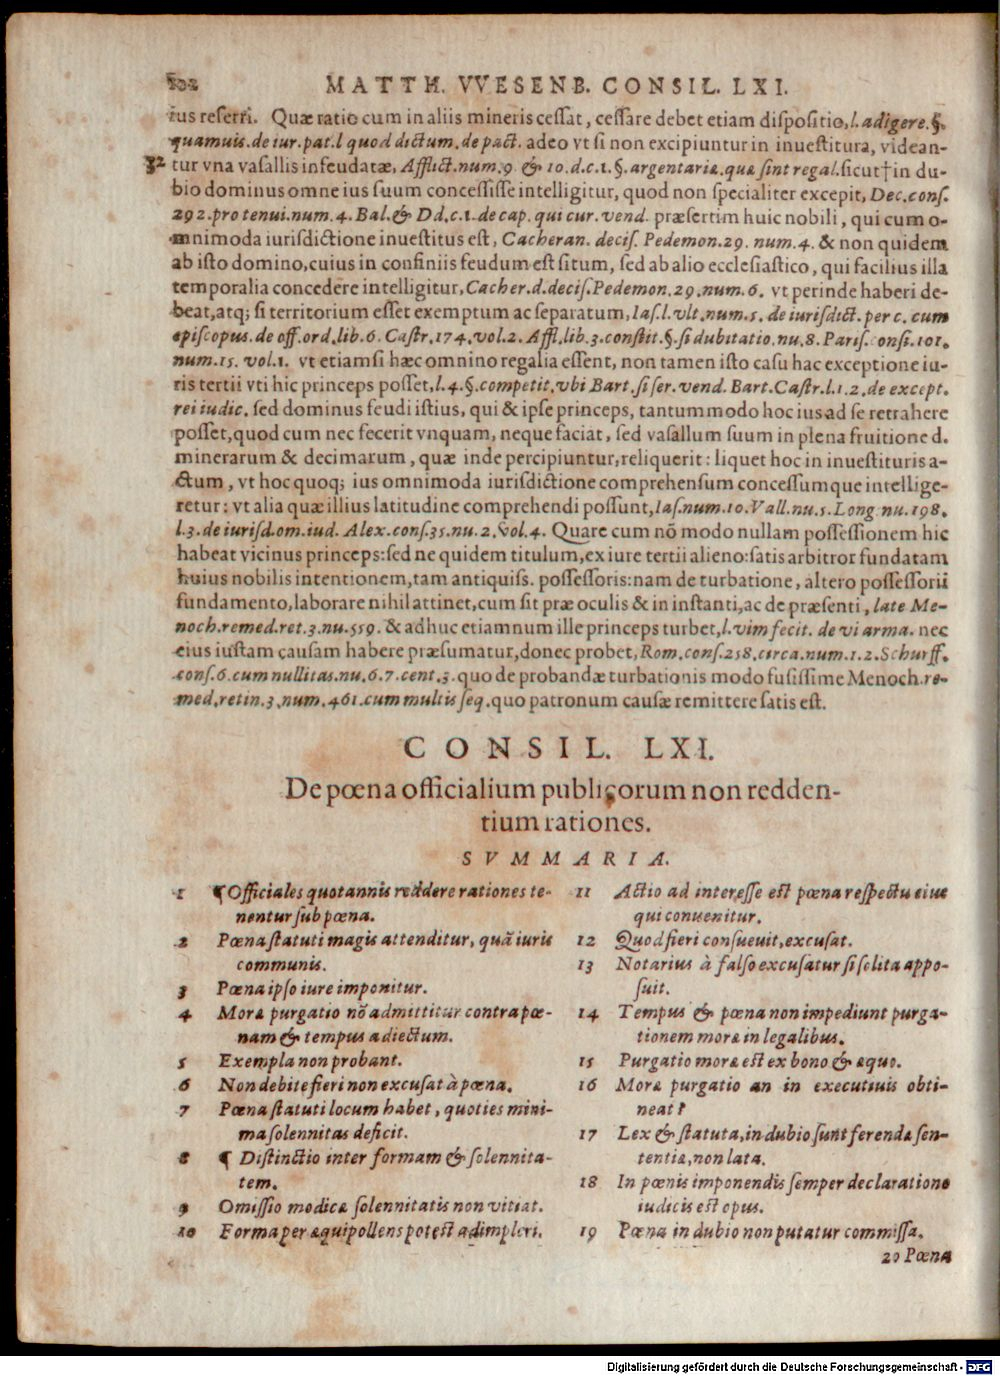 502 MATTH. VVESENB. CONSIL. LXI.
ius referri. Quæ ratio cum in aliis mineris cessat, cessare debet etiam dispositio, l. adigere. §.
quamuis. de iur. pat. l quod dictum. de pact. adeo vt si non excipiuntur in inuestitura, videan-
32 tur vna vasallis infeudatæ, Afflict. num. 9 & 10. d. c. 1. §. argentariæ. quæ sint regal. sicut † in du-
bio dominus omne ius suum concessisse intelligitur, quod non specialiter excepit, Dec. cons.
292. pro tenui. num. 4. Bal. & Dd. c. 1. de cap. qui cur. vend. præsertim huic nobili, qui cum o-
mnimoda iurisdictione inuestitus est, Cacheran. decis. Pedemon. 29. num. 4. & non quidem
ab isto domino, cuius in confiniis feudum est situm, sed ab alio ecclesiastico, qui facilius illa
temporalia concedere intelligitur, Cacher. d. decis. Pedemon. 29. num. 6. vt perinde haberi de-
beat, atq; si territorium esset exemptum ac separatum, Ias. l. vlt. num. 5. de iurisdict. per c. cum
episcopus. de off. ord. lib. 6. Castr. 174. vol. 2. Affl. lib. 3. constit. §. si dubitatio. nu. 8. Paris. consi. 101.
num. 15. vol. 1. vt etiamsi hæc omnino regalia essent, non tamen isto casu hac exceptione iu-
ris tertii vti hic princeps posset, l. 4. §. competit. vbi Bart. si ser. vend. Bart. Castr. l. 1. 2. de except.
rei iudic. sed dominus feudi istius, qui & ipse princeps, tantummodo hoc ius ad se retrahere
posset, quod cum nec fecerit vnquam, neque faciat, sed vasallum suum in plena fruitione d.
minerarum & decimarum, quæ inde percipiuntur, reliquerit: liquet hoc in inuestituris a-
ctum, vt hoc quoq; ius omnimoda iurisdictione comprehensum concessumque intellige-
retur: vt alia quæ illius latitudine comprehendi possunt, Ias. num. 10. Vall. nu. 5. Long nu. 198.
l. 3. de iurisd. om. iud. Alex. cons. 35. nu. 2. vol. 4. Quare cum nō modo nullam possessionem hic
habeat vicinus princeps: sed ne quidem titulum, ex iure tertii alieno: satis arbitror fundatam
huius nobilis intentionem, tam antiquiss. possessoris: nam de turbatione, altero possessorii
fundamento, laborare nihil attinet, cum sit præ oculis & in instanti, ac de præsenti, late Me-
noch. remed. ret. 3. nu. 559. & adhuc etiamnum ille princeps turbet, l. vim fecit. de vi arma. nec
eius iustam causam habere præsumatur, donec probet, Rom. cons. 258. circa. num. 1. 2. Schurff.
cons. 6. cum nullitas. nu. 6. 7. cent. 3. quo de probandæ turbationis modo fusissime Menoch. re-
med. retin. 3. num. 461. cum multis seq. quo patronum causæ remittere satis est.
CONSIL. LXI.
De pœna officialium publicorum non redden-
tium rationes.
SVMMARIA.
1 ¶ Officiales quotannis reddere rationes te-
nentur sub pœna.
2 Pœna statuti magis attenditur, quā iuris
communis.
3 Pœna ipso iure imponitur.
4 Moræ purgatio nō admittitur contra pœ-
nam & tempus adiectum.
5 Exempla non probant.
6 Non debite fieri non excusat à pœna.
7 Pœna statuti locum habet, quoties mini-
ma solennitas deficit.
8 ¶ Distinctio inter formam & solennita-
tem.
9 Omissio modicæ solennitatis non vitiat.
10 Forma per æquipollens potest adimpleri.
11 Actio ad interesse est pœna respectu eius
qui conuenitur.
12 Quod fieri consueuit, excusat.
13 Notarius à falso excusatur si solita appo-
suit.
14 Tempus & pœna non impediunt purga-
tionem moræ in legalibus.
15 Purgatio moræ est ex bono & æquo.
16 Moræ purgatio an in executiuis obti-
neat?
17 Lex & statuta, in dubio sunt ferendæ sen-
tentiæ, non latæ.
18 In pœnis imponendis semper declaratione
iudicis est opus.
19 Pœna in dubio non putatur commissa.
20 Pœna
Digitalisierung gefördert durch die Deutsche Forschungsgemeinschaft - DFG